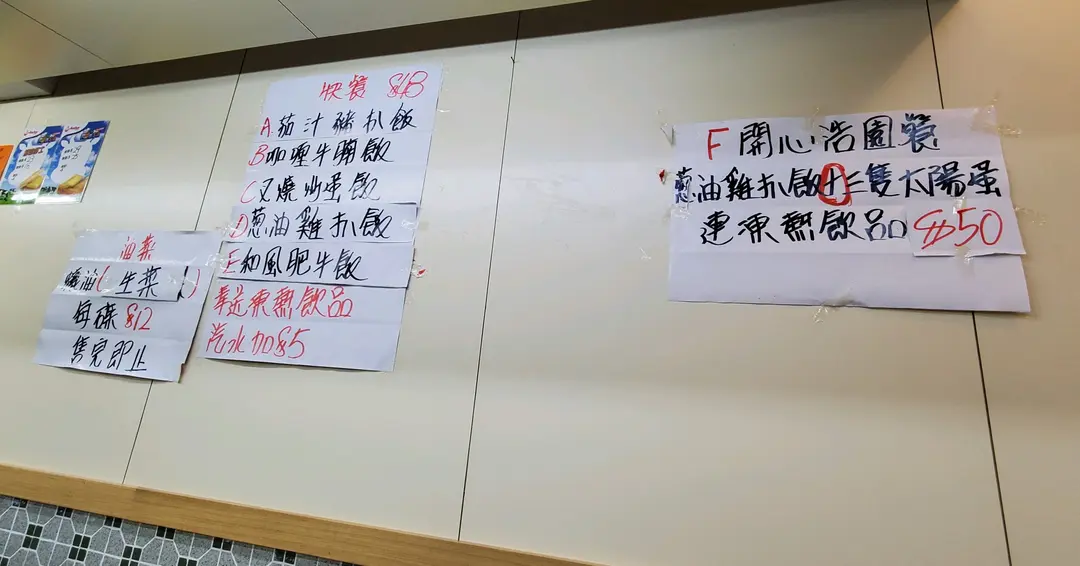 快餐 $48
A.茄汁豬扒飯
B咖喱牛腩飯
C叉燒炒蛋飯
D蔥油雞扒飯
E和風肥牛飯
奉送凍熱飲品
汽水加$5
油菜
蠔油(生菜)
每碟$12
售完即止
F開心浩園餐
蔥油雞扒飯十三隻太陽蛋
連凍熱飲品 $50